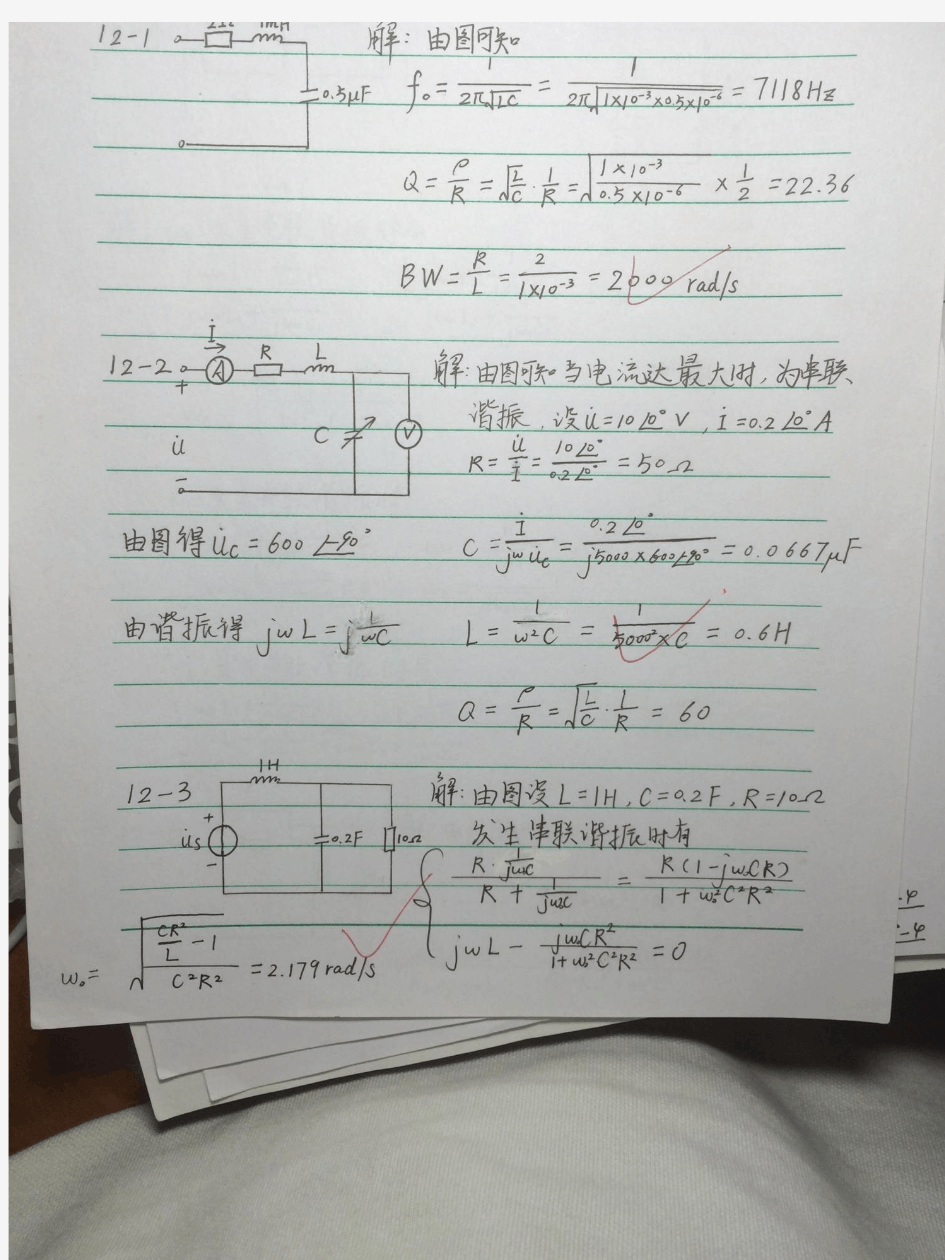 12-1 2Ω 1mH 解: 由图可知
0.5μF f₀ = 1/(2π√LC) = 1/(2π√(1×10⁻³×0.5×10⁻⁶)) = 7118Hz
Q = ρ/R = √(L/C) · 1/R = √(1×10⁻³/0.5×10⁻⁶) × 1/2 = 22.36
BW = R/L = 2/(1×10⁻³) = 2000 rad/s
12-2 İ A R L 解: 由图可知当电流达最大时, 为串联
+ C V 谐振, 设 U̇=10∠0° V, İ=0.2∠0° A
U̇ R = U̇/İ = 10∠0°/0.2∠0° = 50Ω
-
由图得 U̇c = 600∠-90° C = İ/(jω U̇c) = 0.2∠0°/(j5000×600∠-90°) = 0.0667μF
由谐振得 jωL = j 1/(ωC) L = 1/(ω²C) = 1/(5000²×C) = 0.6H
Q = ρ/R = √(L/C) · 1/R = 60
12-3 1H 解: 由图设 L=1H, C=0.2F, R=10Ω
+ U̇s - 0.2F 10Ω 发生串联谐振时有
(R · 1/(jω₀C))/(R + 1/(jω₀C)) = R(1-jω₀CR)/(1+ω₀²C²R²)
jωL - jω₀CR²/(1+ω₀²C²R²) = 0
ω₀ = √((CR²/L - 1)/(C²R²)) = 2.179 rad/s